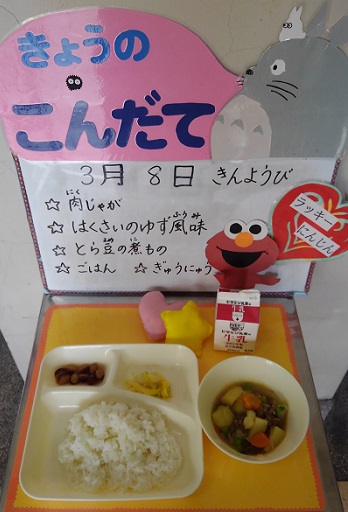 きょうの
こんだて
3月 8日 きんようび
☆肉じゃが
にく
☆はくさいのゆず風味
ふうみ
☆とら豆の煮もの
まめ に
☆ごはん ☆ぎゅうにゅう
ラッキー
にんじん
牛乳
牛乳